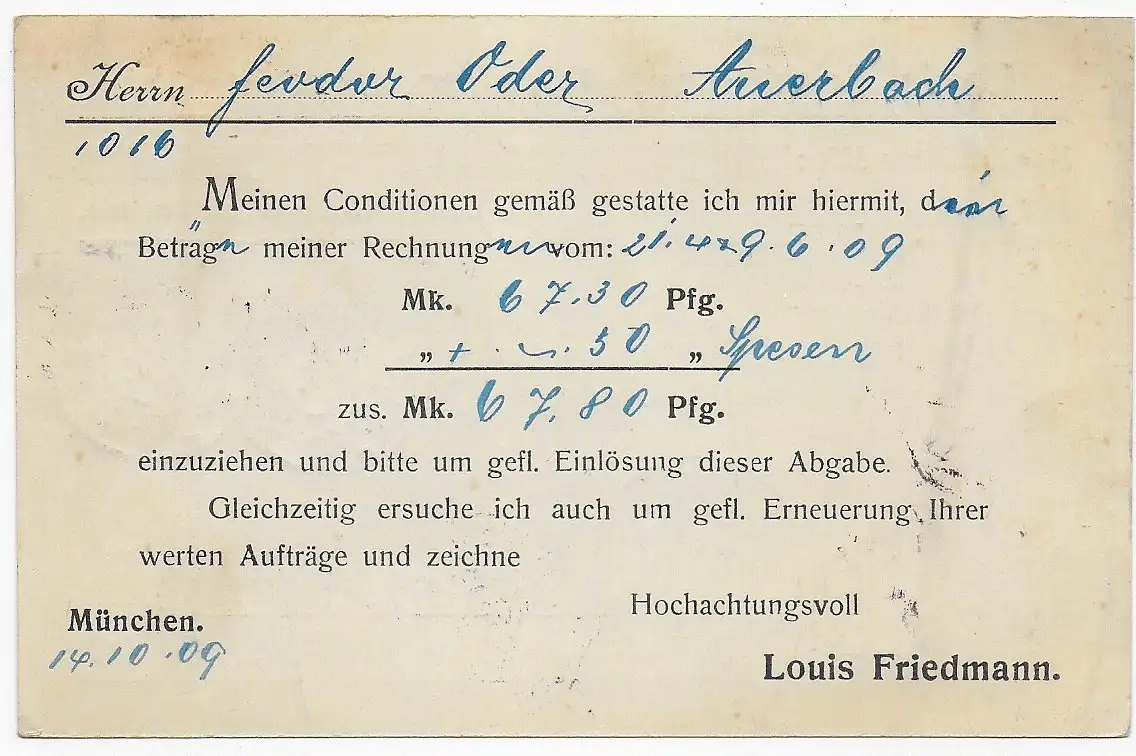 Herrn Feodor Oder Auerbach
1016
Meinen Conditionen gemäß gestatte ich mir hiermit, die
Beträgn meiner Rechnungen vom: 21.4 & 9.6.09
Mk. 67.30 Pfg.
„ + . –.50 „ Spesen
zus. Mk. 67.80 Pfg.
einzuziehen und bitte um gefl. Einlösung dieser Abgabe.
Gleichzeitig ersuche ich auch um gefl. Erneuerung Ihrer
werten Aufträge und zeichne
Hochachtungsvoll
München.
14.10.09
Louis Friedmann.